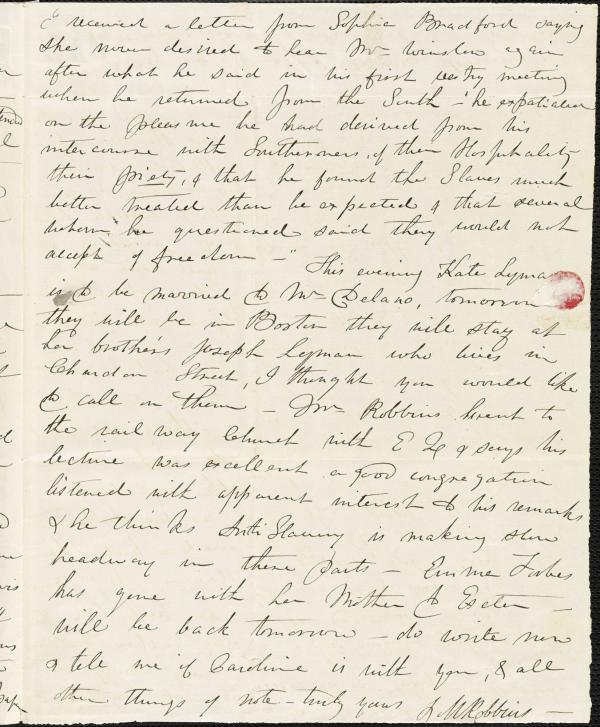 "I received a letter from Sophia Bradford saying
she never desired to hear Mr Winslow again
after what he said in his first vestry meeting
when he returned from the South - "he expatiated
on the pleasure he had derived from his
intercourse with Southerners, of their Hospitality
their piety, & that he found the Slaves much
better treated than he expected & that several
whom he questioned said they would not
accept of freedom - " This evening Kate Lyman
is to be married to Mr Delano, tomorrow
they will be in Boston they will stay at
her brother's Joseph Lyman who lives in
Chardon Street, I thought you would like
to call on them - Mr Robbins went to
the rail way Church with E Q & says his
lecture was excellent a good congregation
listened with apparent interest to his remarks
& he thinks Anti Slavery is making slow
headway in these parts - Emma Forbes
has gone with her Mother to Exeter -
will be back tomorrow - do write now
& tell me if Caroline is with you, & all
other things of note - truly yours L M Robbins -